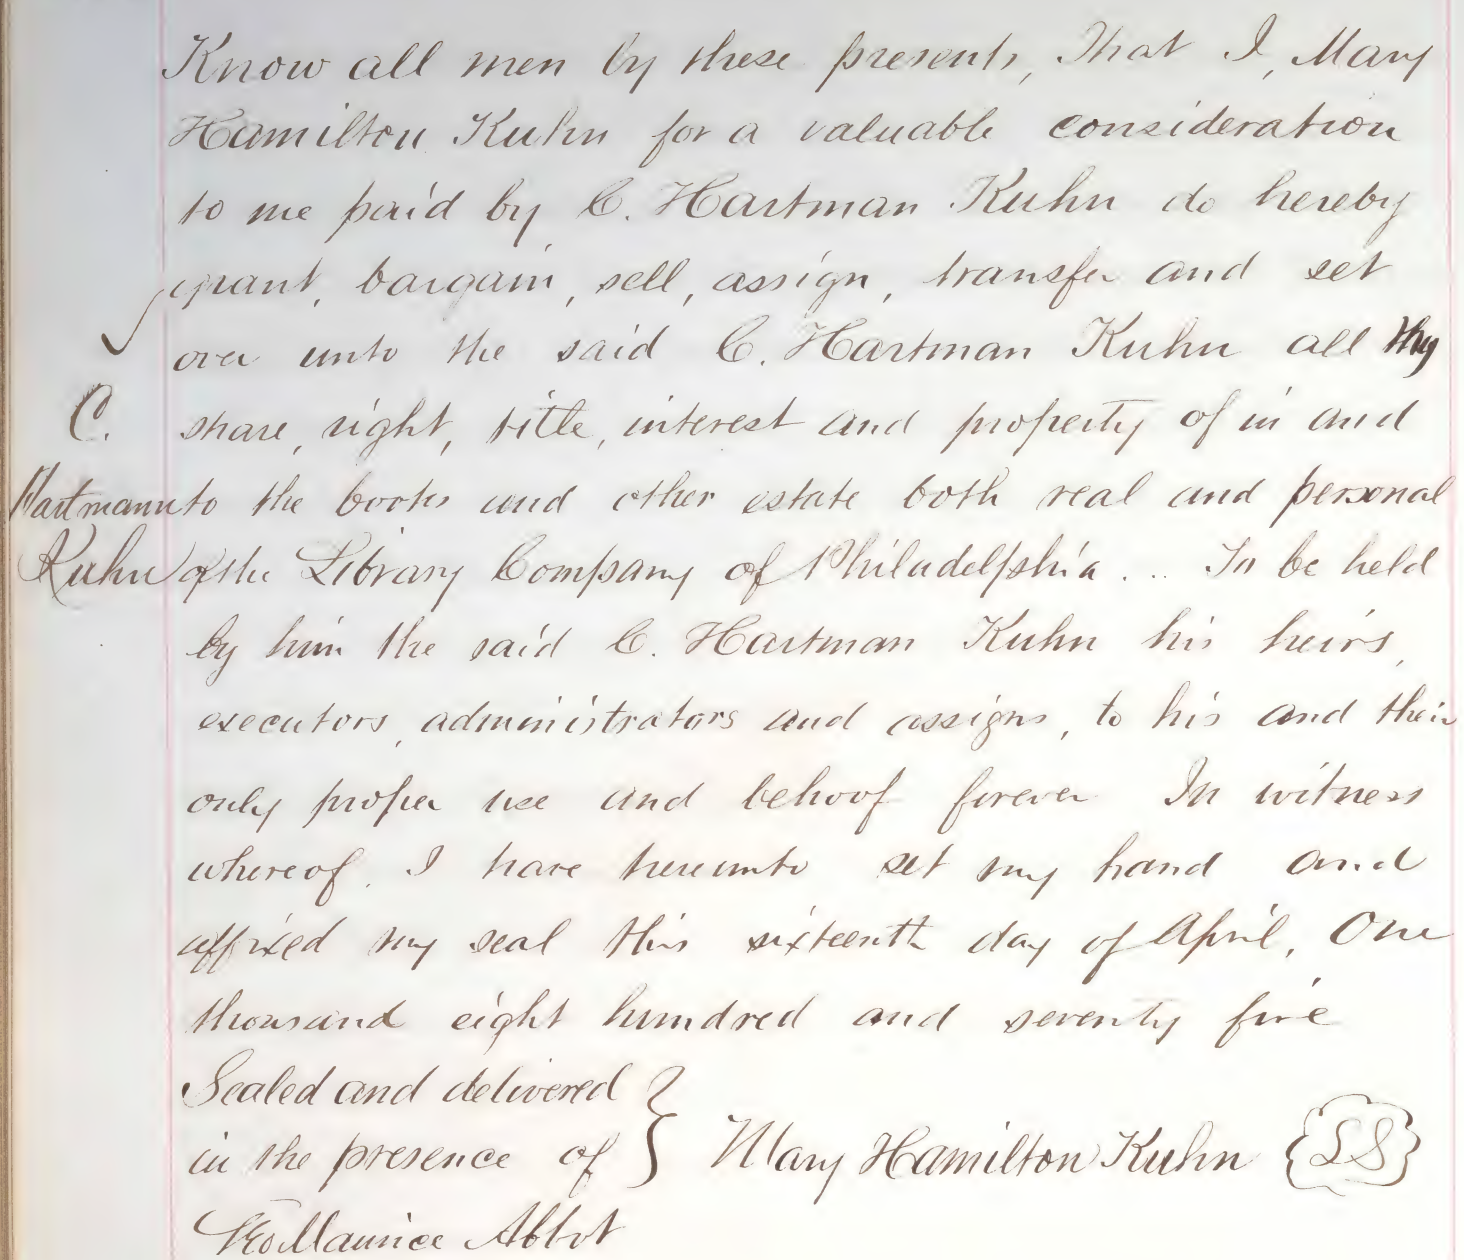 Know all men by these presents, That I, Mary
Hamilton Kuhn for a valuable consideration
to me paid by C. Hartman Kuhn do hereby
grant, bargain, sell, assign, transfer and set
over unto the said C. Hartman Kuhn all my
C.
share, right, title, interest and property of in and
Hartmann
to the books and other estate both real and personal
Kuhn
of the Library Company of Philadelphia. .. To be held
by him the said C. Hartman Kuhn his heirs,
executors, administrators and assigns, to his and their
only proper use and behoof forever In witness
whereof, I have hereunto set my hand and
affixed my seal this sixteenth day of April, One
thousand eight hundred and seventy five
Sealed and delivered
in the presence of } Mary Hamilton Kuhn {LS}
Geo Maurice Abbot